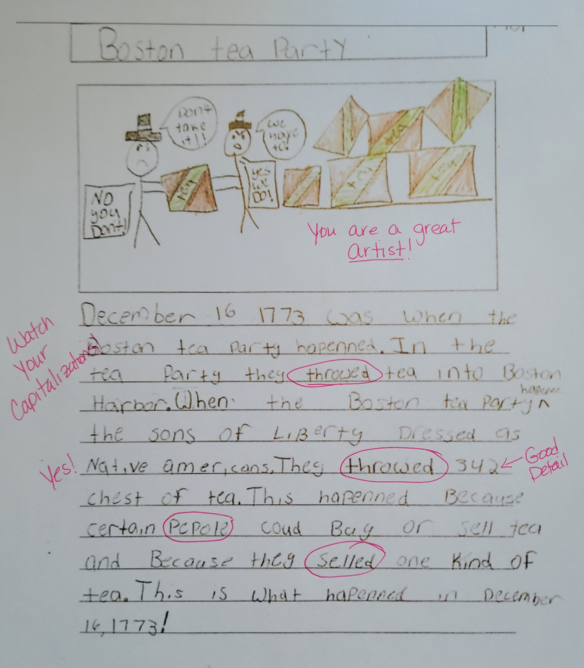 Boston tea Party
Don't take it!!
we have to!
NO you Dont!
Yes we DO!
tea
tea
tea
tea
tea
You are a great artist!
Watch Your Capitalization!
December 16 1773 was when the
Boston tea Party hapenned. In the
tea Party they throwed tea into Boston
Harbor. When the Boston tea Party ^ happened
the sons of LiBerty Dressed as
Yes! Native amer,cans. They throwed 342 ← Good Detail
chest of tea. This hapenned Because
certain Pepole coud Buy or sell tea
and Because they selled one kind of
tea. This is what hapenned in December
16, 1773!